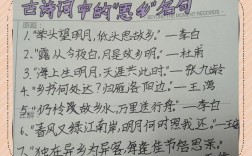 古诗词中的“思乡”名句
1.“举头望明月,低头思故乡。”—李白
2.“露从今夜白,月是故乡明。”—杜甫
3.“海上生明月,天涯共此时。”—张九龄
4.“乡书何处达?归雁洛阳边。”—王湾
5.“仍怜故乡水,万里送行舟。”—李白
6.“春风又绿江南岸,明月何时照我还。”—王
7.“独在异乡为异客,每逢佳节倍思亲。”